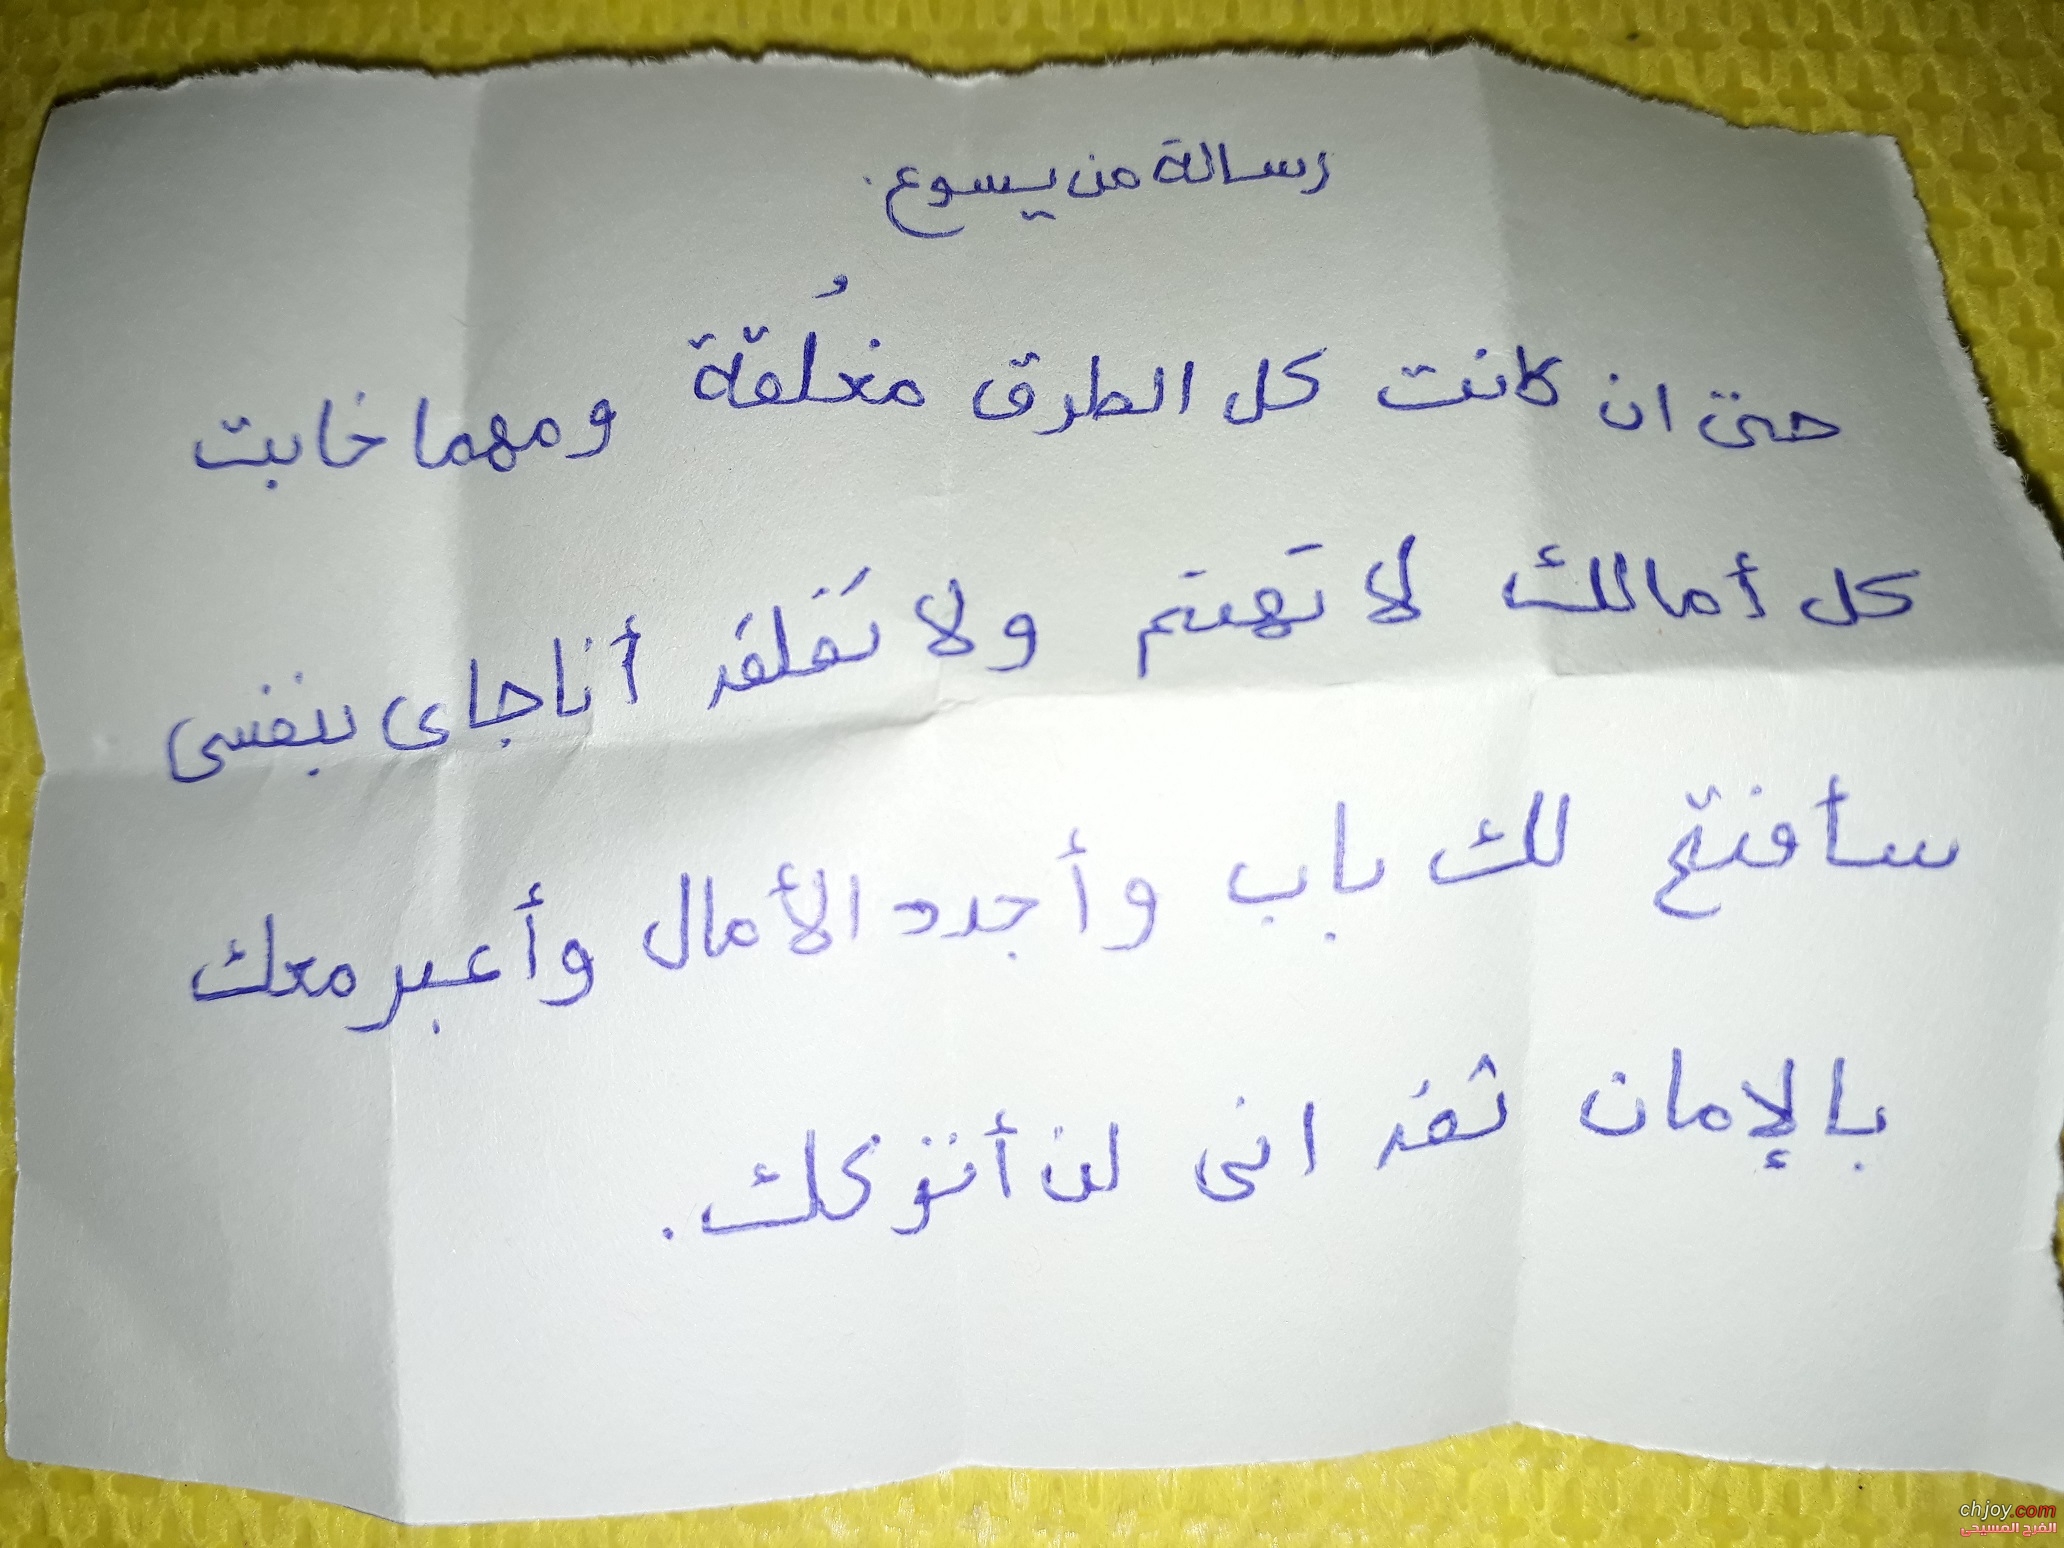 رسالة من يسوع.
حتى ان كانت كل الطرق مغلُقة ومهما خابت
كل أمالك لا تَهتم ولا تَقلق أنا جاى بنفسى
سأفتح لك باب وأجدد الأمال وأعبر معك
بالإمان ثق انى لن أتركك.
chjoy.com
الفرح المسيحى